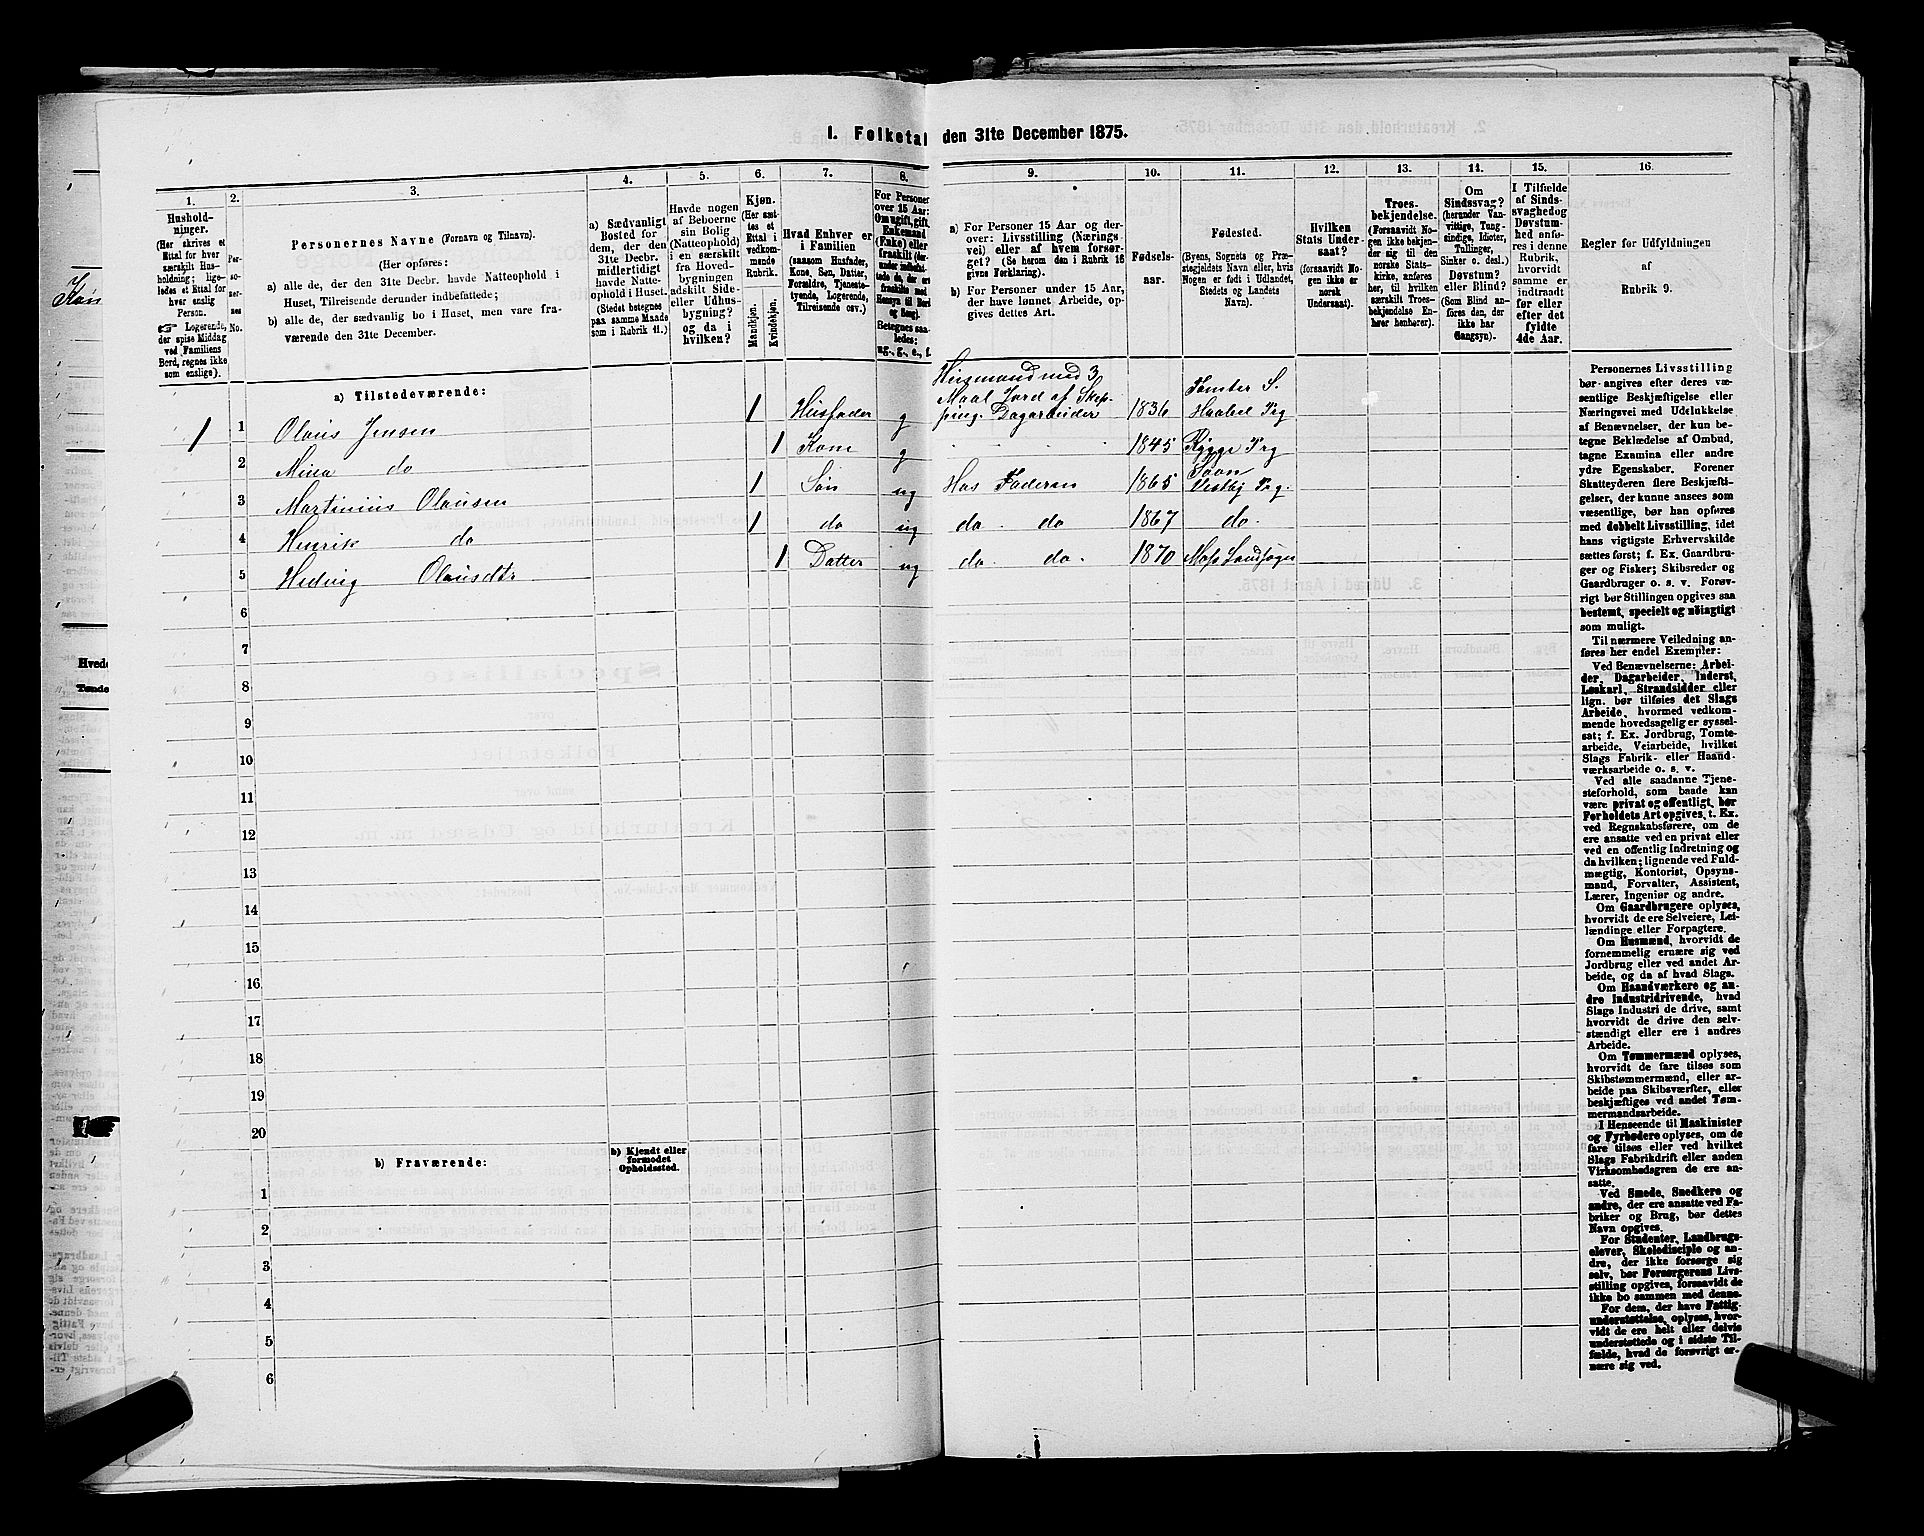 1. Folketal den 31te December 1875.
1.
Hushold-
ninger.
(Her skrives et
Ettal for hver
særskilt Hus-
holdning; lige-
ledes et Ettal for
hver enslig
Person.
☞ Logerende,
der spise Middag
ved Familiens
Bord, regnes ikke
som enslige).
2.
Per-
so-
ner-
nes
No.
3.
Personernes Navne (Fornavn og Tilnavn).
(Her opføres:
a) alle de, der den 31te Decbr. havde Natteophold i
Huset, Tilreisende derunder indbefattede;
b) alle de, der sædvanlig bo i Huset, men vare fra-
værende den 31te December.
4.
a) Sædvanligt
Bosted for
dem, der den
31te Decbr.
midlertidigt
havde Natte-
ophold i Huset.
(Stedet betegnes
paa samme Maade
som i Rubrik 11.)
5.
Havde nogen
af Beboerne
sin Bolig
(Natteophold)
i en særskilt
fra Hoved-
bygningen
adskilt Side-
eller Udhus-
bygning?
og da i
hvilken?
6.
Kjøn.
(Her sæt-
tes et
Ettal i
vedkom-
mende
Rubrik.
Mandkjøn.
Kvindekjøn.
7.
Hvad Enhver er
i Familien
(saasom Husfader,
Kone, Søn, Datter,
Forældre, Tjeneste-
tyende, Logerende,
Tilreisende osv.)
8.
For Personer
over 15 Aar:
Om ugift, gift,
Enkemand
(Enke) eller
fraskilt
Betegnes saa-
ledes:
ug., g., e., f.
9.
a) For Personer 15 Aar og der-
over: Livsstilling (Nærings
vei) eller af hvem forsør-
get? (Se herom den i Rubrik 16
givne Forklaring).
b) For Personer under 15 Aar,
der have lønnet Arbeide, op-
gives dettes Art.
10.
Fødsels-
aar.
11.
Fødested.
(Byens, Sognets og Præ-
stegjeldets Navn eller, hvis
Nogen er født i Udlandet,
Stedets og Landets
Navn).
12.
Hvilken
Stats Under-
saat?
(foresaavidt No-
gen ikke er
norsk
Undersaat).
13.
Troes-
bekjendelse.
(Forsaavidt No-
gen ikke bekjen-
der sig til den
norske Stats-
kirke, anføres
her, til hvilken
særskilt Troes-
bekjendelse En-
hver henhører).
14.
Om
Sindssvag?
(herunder Van-
vittige, Tung-
sindige, Idioter,
Tullinger,
Sinker o. desl.)
Døvstum?
eller Blind?
(Som Blind an-
føres den, der
ikke har
Gangsyn).
15.
I Tilfælde
af Sinds-
svaghed og
Døvstum-
hed anfø-
res i denne
Rubrik,
hvorvidt
samme er
indtraadt
før eller
efter det
fyldte
4de Aar.
16.
Regler for Udfyldningen
af
Rubrik 9.
a) Tilstedeværende:
1 1 Olaus Jensen 1 Husfader g Husmand med 3 Maal Jord af Skep- ping. Dagarbeider 1836 Tomter S. Haabøl Prg
2 Mina do 1 Kone g 1845 Rygge Prg
3 Martinius Olausen 1 Søn ug Hos Faderen 1865 Soon Vestby Prg.
4 Henrik do 1 do ug do do 1867 do.
5 Hedvig Olausdtr 1 Datter ug do do. 1870 Moss Landsogn
6
7
8
9
10
11
12
13
14
15
16
17
18
19
20
b) Fraværende:
b) Kjendt eller
formodet
Opholdssted.
1
2
3
4
5
6
Personernes Livsstilling
bør angives efter deres væ-
sentlige Beskjæftigelse eller
Næringsvei med Udelukkelse
af Benævnelser, der kun be-
tegne Beklædelse af Ombud,
tagne Examina eller andre
ydre Egenskaber. Forener
Skatteyderen flere Beskjæfti-
gelser, der kunne ansees som
væsentlige, bør han opføres
med dobbelt Livsstilling, idet
hans vigtigste Erhvervskilde
sættes først; f. Ex. Gaardbru-
ger og Fisker; Skibsreder og
Gaardbruger o. s. v. Forøv-
rigt bør Stillingen opgives saa
bestemt, specielt og nøiagtigt
som muligt.
Til nærmere Veiledning an-
føres her endel Exempler:
Ved Benævnelserne: Arbei-
der, Dagarbeider, Inderst,
Løskarl, Strandsidder eller
lign. bør tilføies det Slags
Arbeide, hvormed vedkom-
mende hovedsagelig er syssel-
sat; f. Ex. Jordbrug, Tomte-
arbeide, Veiarbeide, hvilket
Slags Fabrik- eller Haand-
værksarbeide o. s. v.
Ved alle saadanne Tjene-
steforhold, som baade kan
være privat og offentligt, bør
Forholdets Art opgives, t. Ex.
ved Regnskabsførere, om de
ere ansatte ved en privat eller
ved en offentlig Indretning og
da hvilken; lignende ved Fuld-
mægtig, Kontorist, Opsyns-
mand, Forvalter, Assistent,
Lærer, Ingeniør og andre.
Om Gaardbrugere oplyses,
hvorvidt de ere Selveiere, Lei-
lændinge eller Forpagtere.
Om Husmænd, hvorvidt de
fornemmelig ernære sig ved
Jordbrug eller ved andet Ar-
beide, og da af hvad Slags.
Om Haandværkere og an-
dre Industridrivende, hvad
Slags Industri de drive, samt
hvorvidt de drive den selv-
stændigt eller ere i andres
Arbeide.
Om Tømmermænd oplyses,
hvorvidt de fare tilsøs som
Skibstømmermænd, eller ar-
beide paa Skibsværfter, eller
beskjæftiges ved andet Tøm-
mermandsarbeide.
I Henseende til Maskinister
og Fyrbødere oplyses, om de
fare tilsøs eller ved hvilket
Slags Fabrikdrift eller anden
Virksombedsgren de ere an-
satte.
Ved Smede, Snedkere og
andre, der ere ansatte ved Fa-
briker og Brug, bør dettes
Navn opgives.
For Studenter, Landbrugs-
elever, Skoledisciple og an-
dre, der ikke forsørge sig
selv, bør Forsørgerens Livs-
stilling opgives, forsaavidt de
ikke bo sammen med denne.
For dem, der have Fattig-
understøttelse, oplyses, hvor-
vidt de ere helt eller delvis
understøttede og i sidste Til-
fælde, hvad de forøvrigt er-
nære sig ved.